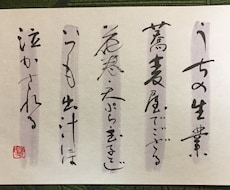 うちの生業
蕎麦屋でござる
花巻天ぷら玉子とじ
いつも出汁に
泣かされる